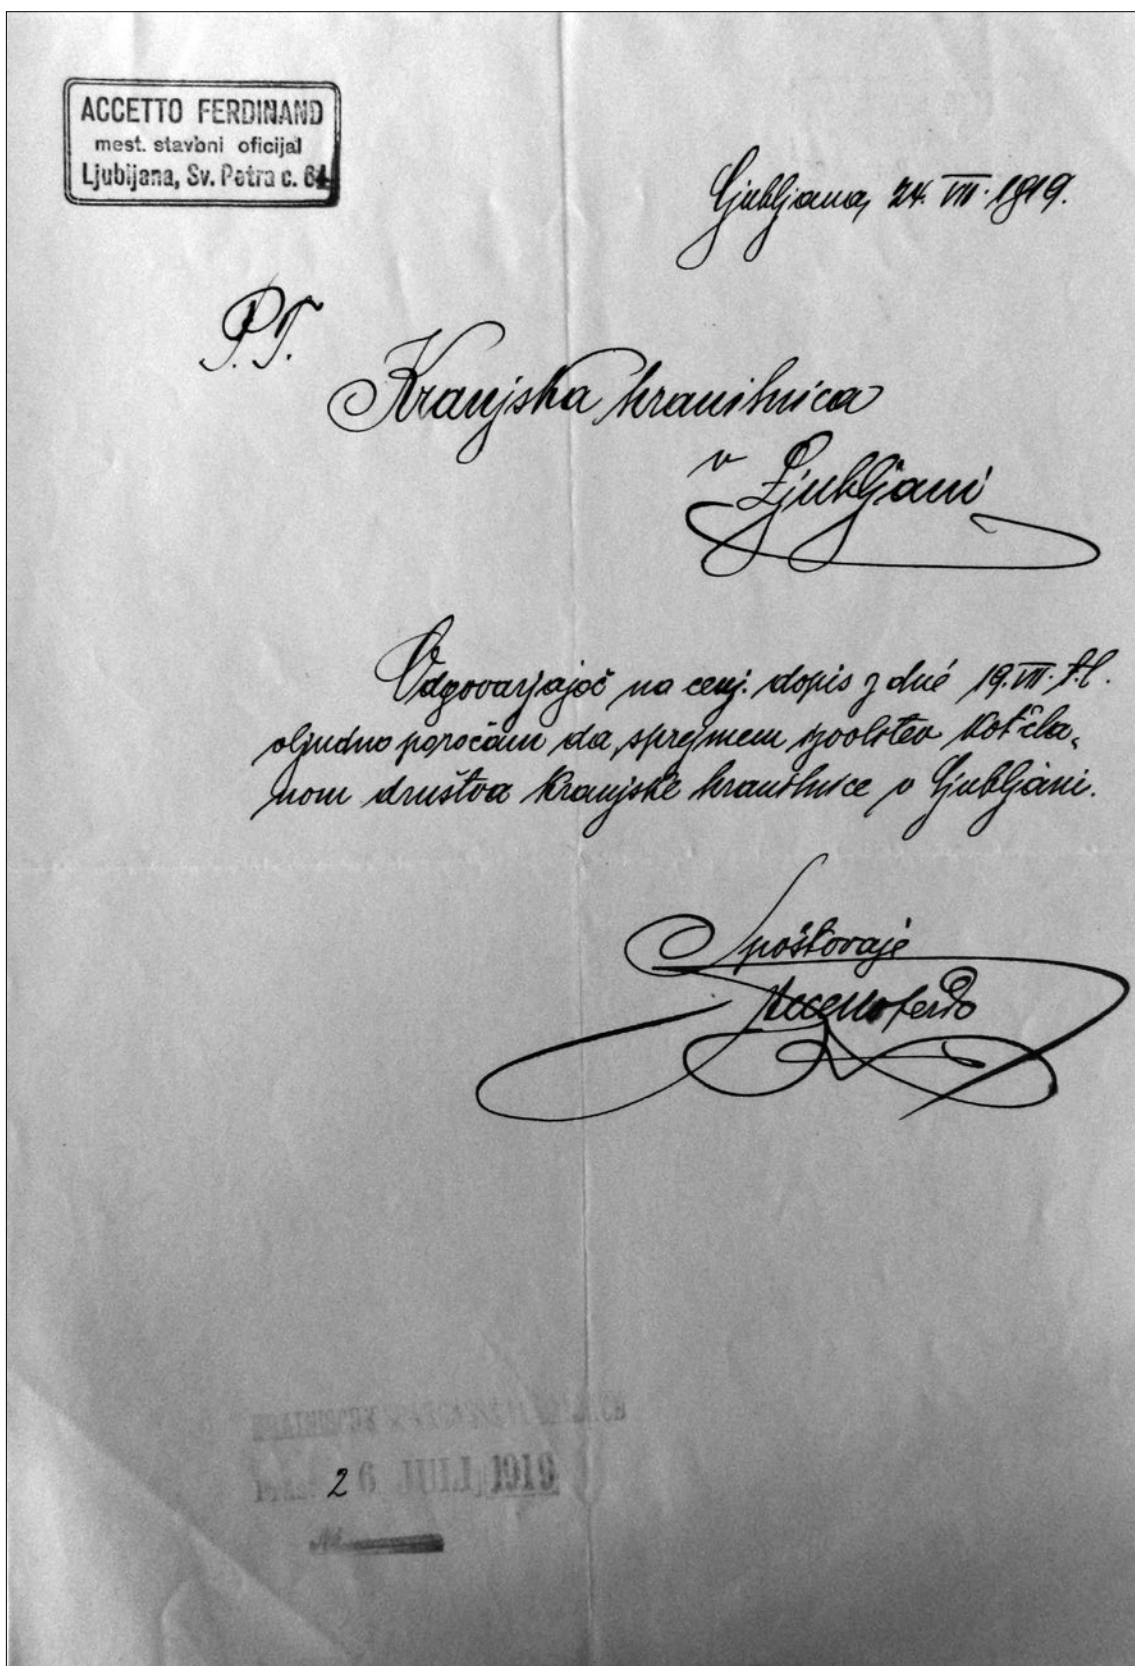 ACCETTO FERDINAND
mest. stavbni oficijal
Ljubljana, Sv. Petra c. 64
Ljubljana, 24. VII. 1919.
P.T.
Kranjska hranilnica
v
Ljubljani
Odgovarjajoč na cenj. dopis z dné 19. VII. t.l.
uljudno poročam da sprejmem izvolitev kot čla„
nom društva Kranjske hranilnice v Ljubljani.
Spoštovaje
Accetto Ferdo
26 JULI 1919